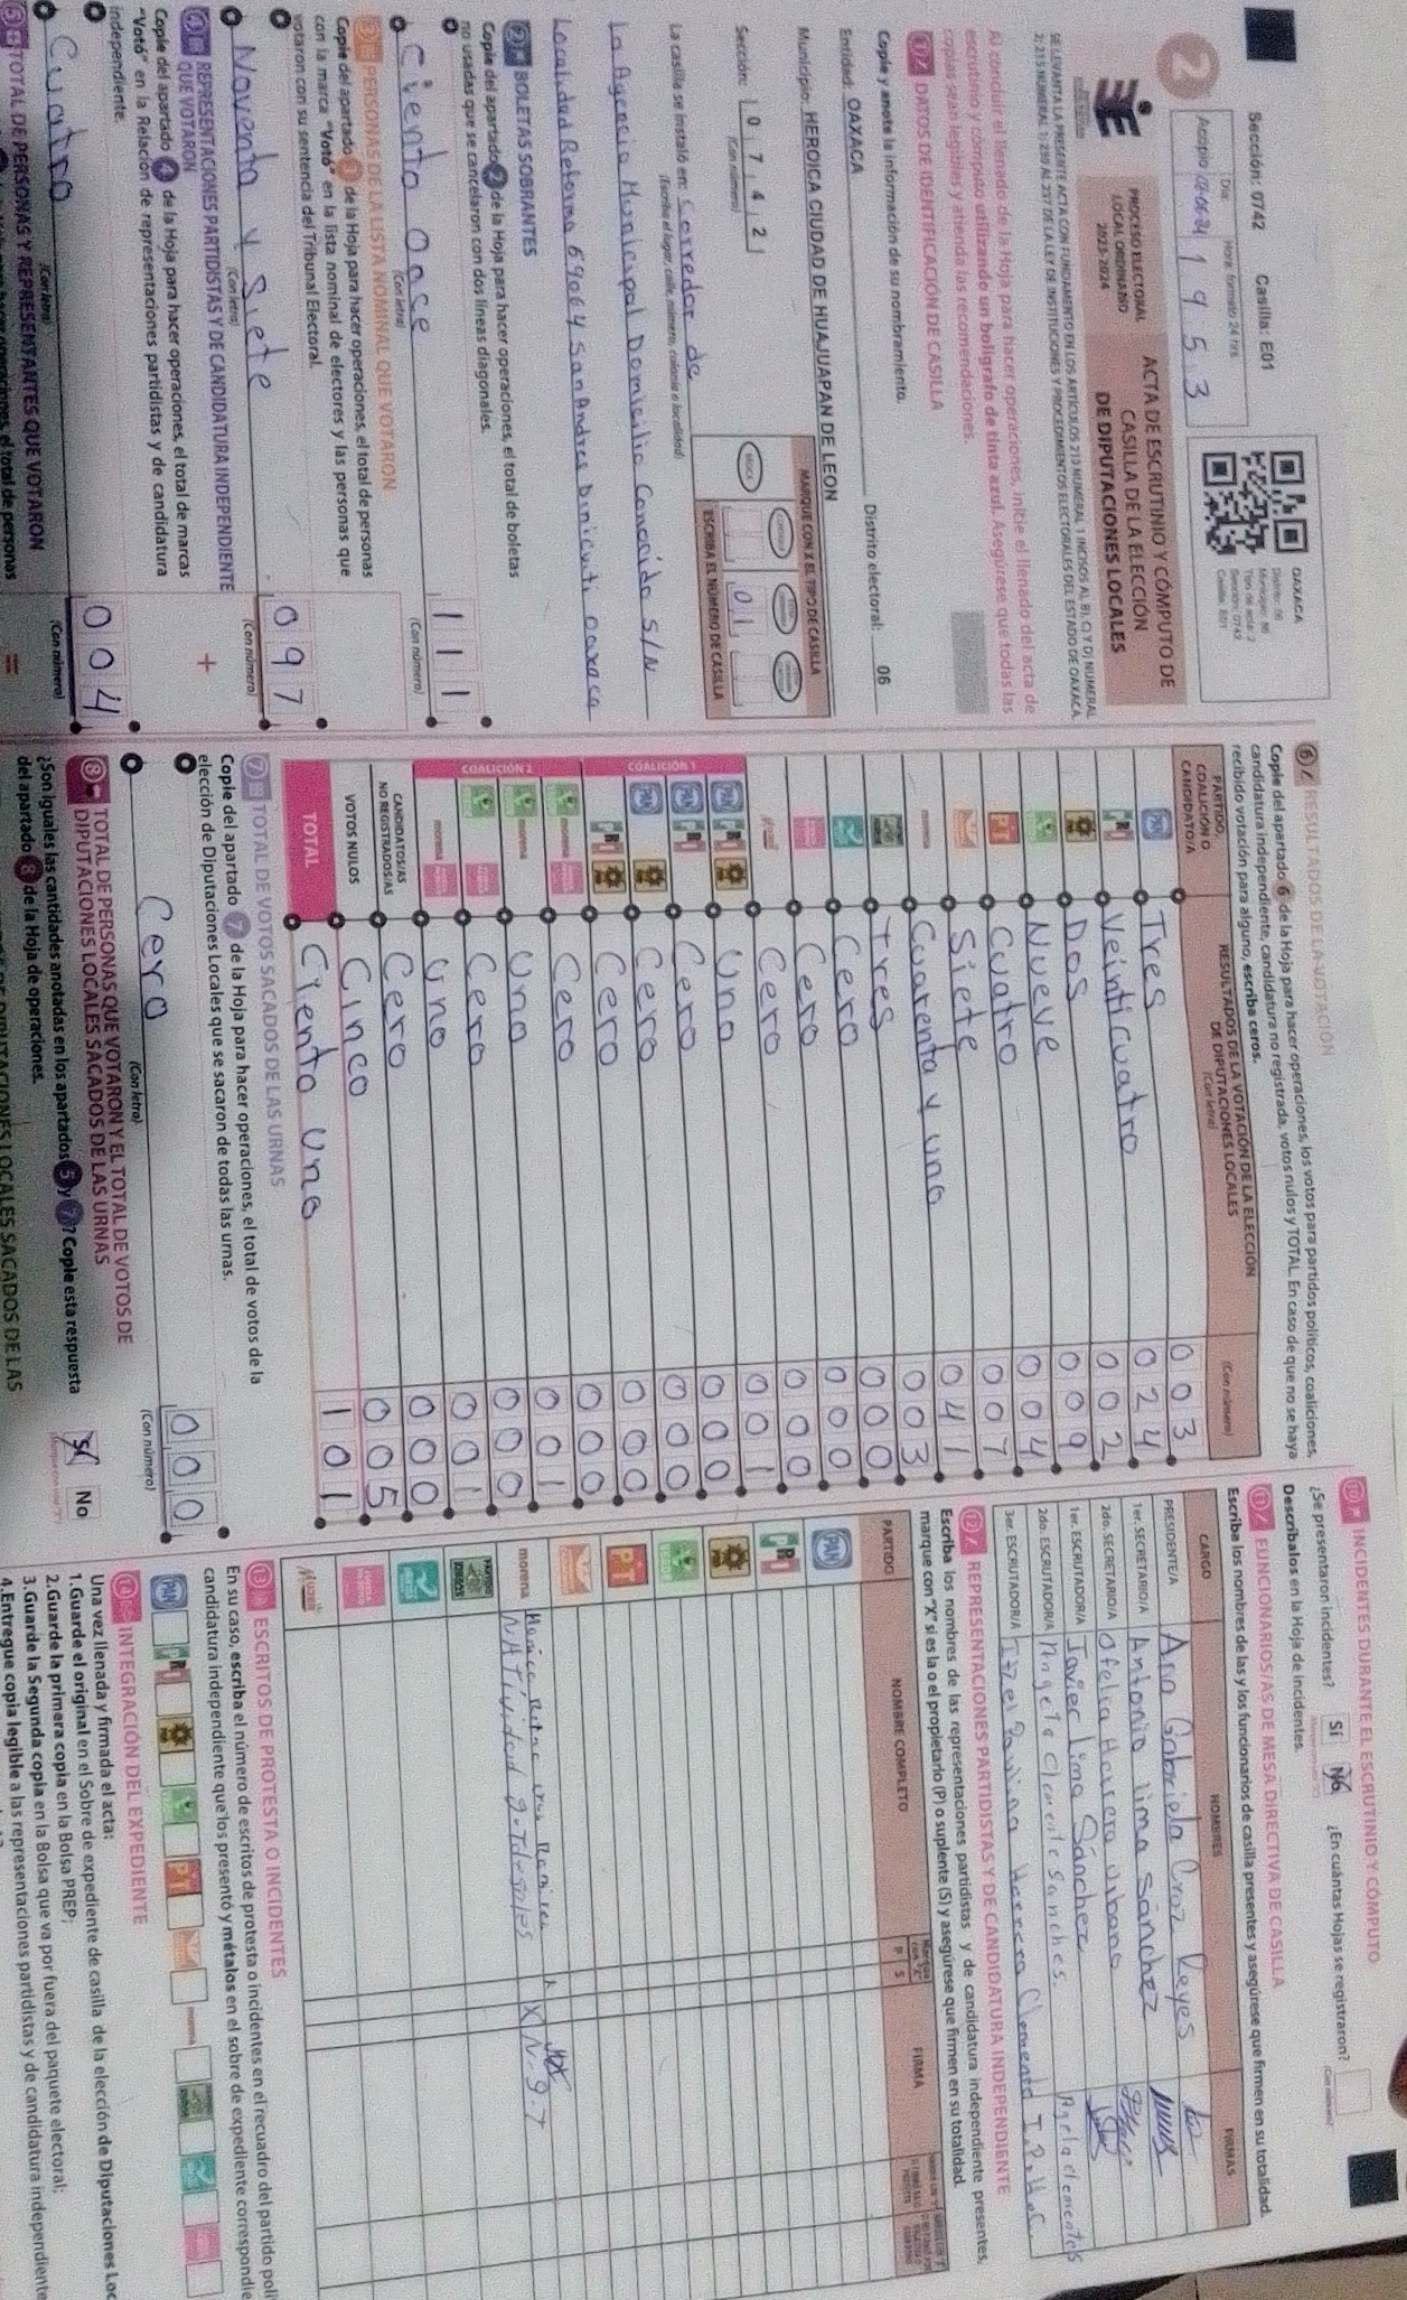 Sección: 0742 Casilla: E01
Día Hora: formato 24 hrs
Acopio 19 53
2
OAXACA
PROCESO ELECTORAL
LOCAL ORDINARIO
2023-2024
ACTA DE ESCRUTINIO Y CÓMPUTO DE
CASILLA DE LA ELECCIÓN
DE DIPUTACIONES LOCALES
Al concluir el llenado de la Hoja para hacer operaciones, inicie el llenado del acta de
escrutinio y cómputo utilizando un bolígrafo de tinta azul. Asegúrese que todas las
copias sean legibles y atienda las recomendaciones.
1 DATOS DE IDENTIFICACIÓN DE CASILLA
Copie y anote la información de su nombramiento.
Entidad: OAXACA Distrito electoral: 06
Municipio: HEROICA CIUDAD DE HUAJUAPAN DE LEON
Sección: 0 7 4 2
(Con número)
MARQUE CON X EL TIPO DE CASILLA
0 1
ESCRIBA EL NÚMERO DE CASILLA
La casilla se instaló en: Corredor de
(Escriba el lugar, calle, número, colonia o localidad)
La Agencia Municipal Domicilio Conocido S/N
Localidad Reforma 69064 San Andres Dinicuiti Oaxaca
2 BOLETAS SOBRANTES
Copie del apartado 2 de la Hoja para hacer operaciones, el total de boletas
no usadas que se cancelaron con dos líneas diagonales.
Ciento Once 1 1 1
(Con letra) (Con número)
3 PERSONAS DE LA LISTA NOMINAL QUE VOTARON
Copie del apartado 3 de la Hoja para hacer operaciones, el total de personas
con la marca "Votó" en la lista nominal de electores y las personas que
votaron con su sentencia del Tribunal Electoral.
Noventa y Siete 0 9 7
(Con letra) (Con número)
4 REPRESENTACIONES PARTIDISTAS Y DE CANDIDATURA INDEPENDIENTE
QUE VOTARON
Copie del apartado 4 de la Hoja para hacer operaciones, el total de marcas
"Votó" en la Relación de representaciones partidistas y de candidatura
independiente.
Cuatro 0 0 4
(Con letra) (Con número)
5 TOTAL DE PERSONAS Y REPRESENTANTES QUE VOTARON
6 RESULTADOS DE LA VOTACIÓN
Copie del apartado 6 de la Hoja para hacer operaciones, los votos para partidos políticos, coaliciones,
candidatura independiente, candidatura no registrada, votos nulos y TOTAL. En caso de que no se haya
recibido votación para alguno, escriba ceros.
PARTIDO,
COALICIÓN O
CANDIDATO/A
RESULTADOS DE LA VOTACIÓN DE LA ELECCIÓN
DE DIPUTACIONES LOCALES
(Con letra) (Con número)
PAN Tres 0 0 3
PRI Veinticuatro 0 2 4
PRD Dos 0 0 2
Nueve 0 0 9
PT Cuatro 0 0 4
Siete 0 0 7
morena Cuarenta y uno 0 4 1
tres 0 0 3
Cero 0 0 0
Cero 0 0 0
Cero 0 0 0
COALICIÓN 1
PAN PRI PRD Uno 0 0 1
PAN PRI Cero 0 0 0
PAN PRD Cero 0 0 0
PRI PRD Cero 0 0 0
COALICIÓN 2
morena Cero 0 0 0
morena Uno 0 0 1
Cero 0 0 0
morena Uno 0 0 1
CANDIDATOS/AS
NO REGISTRADOS/AS Cero 0 0 0
VOTOS NULOS Cinco 0 0 5
TOTAL Ciento Uno 1 0 1
7 TOTAL DE VOTOS SACADOS DE LAS URNAS
Copie del apartado 7 de la Hoja para hacer operaciones, el total de votos de la
elección de Diputaciones Locales que se sacaron de todas las urnas.
Cero 0 0 0
(Con letra) (Con número)
8 TOTAL DE PERSONAS QUE VOTARON Y EL TOTAL DE VOTOS DE
DIPUTACIONES LOCALES SACADOS DE LAS URNAS
¿Son iguales las cantidades anotadas en los apartados 5 y 7? Copie esta respuesta
del apartado 8 de la Hoja de operaciones.
Sí No
10 INCIDENTES DURANTE EL ESCRUTINIO Y CÓMPUTO
¿Se presentaron incidentes? Sí No ¿En cuántas Hojas se registraron?
Descríbalos en la Hoja de incidentes.
11 FUNCIONARIOS/AS DE MESA DIRECTIVA DE CASILLA
Escriba los nombres de las y los funcionarios de casilla presentes y asegúrese que firmen en su totalidad.
CARGO NOMBRES FIRMAS
PRESIDENTE/A Ana Gabriela Cruz Reyes
1er. SECRETARIO/A Antonio Lima Sánchez
2do. SECRETARIO/A Ofelia Herrera Urbano
1er. ESCRUTADOR/A Javier Lima Sánchez
2do. ESCRUTADOR/A Angela Clemente Sanches
3er. ESCRUTADOR/A Itzel Paulina Herrera Clemente
12 REPRESENTACIONES PARTIDISTAS Y DE CANDIDATURA INDEPENDIENTE
Escriba los nombres de las representaciones partidistas y de candidatura independiente presentes,
marque con "X" si es la o el propietario (P) o suplente (S) y asegúrese que firmen en su totalidad.
PARTIDO NOMBRE COMPLETO P S FIRMA
PAN
PRI
PRD
PT
morena
X N.g.T
13 ESCRITOS DE PROTESTA O INCIDENTES
En su caso, escriba el número de escritos de protesta o incidentes en el recuadro del partido polí
candidatura independiente que los presentó y métalos en el sobre de expediente correspondie
PAN PRI PRD PT morena
14 INTEGRACIÓN DEL EXPEDIENTE
Una vez llenada y firmada el acta:
1.Guarde el original en el Sobre de expediente de casilla de la elección de Diputaciones Loc
2.Guarde la primera copia en la Bolsa PREP;
3.Guarde la Segunda copia en la Bolsa que va por fuera del paquete electoral;
4.Entregue copia legible a las representaciones partidistas y de candidatura independiente